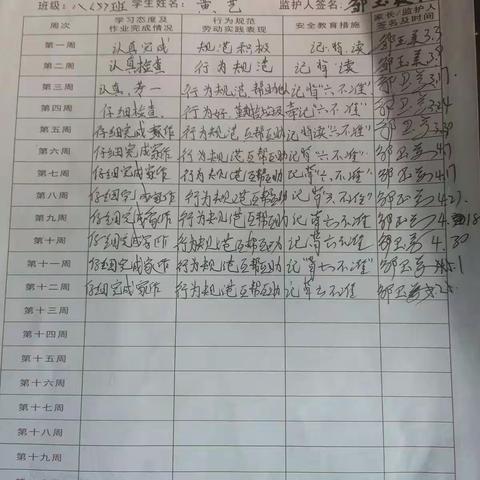 班级: 八(3)班 学生姓名: 黄艺 监护人签名:
周次 学习态度及作业完成情况 行为规范劳动实践表现 安全教育措施 家长/监护人签名及时间
第一周 认真完成 规范积极 记、背、读 3.3
第二周 认真检查 行为规范 记背读 3.9
第三周 认真, 行为规范 记背"六不准" 3.17
第四周 仔细检查. 行为好, 背记"六不准" 3.24
第五周 仔细完成家作 行为规范互帮互助 记背读"六不准"
第六周 仔细完成家作 行为规范互帮互助 记背"六不准"
第七周 仔细完成家作 行为规范互帮互助 记背"六不准" 4.17
第八周 仔细完成家作 行为规范互帮互助 记背"六不准"
第九周 仔细完成家作 行为规范互帮互助 记背六不准
第十周 仔细完成家作 行为规范互帮互助 记背六不准 4.30
第十一周 仔细完成家作 行为规范互帮互助 记"背六不准"
第十二周 仔细完成家作 行为规范互帮互助 记背六不准
第十三周
第十四周
第十五周
第十六周
第十七周
第十八周
第十九周